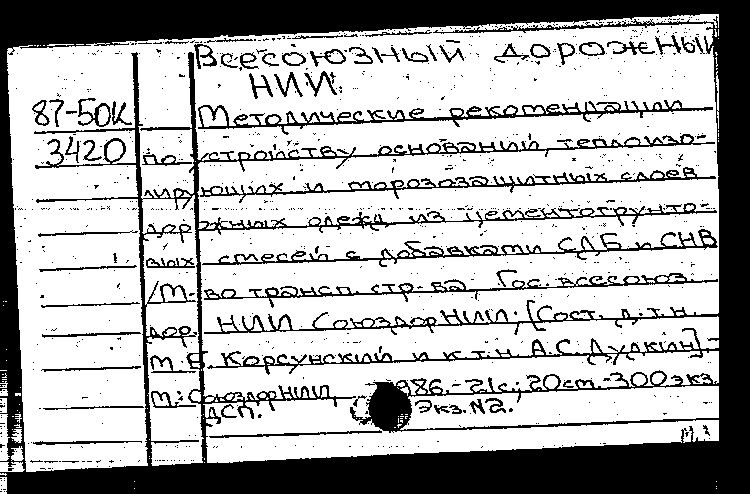 Всесоюзный дорожный
НИИ.
87-50К Методические рекомендации
3420 по устройству оснований, теплоизо-
лирующих и морозозащитных слоев
дорожных одежд из цементогрунто-
вых смесей с добавками СДБ и СНВ
/М-во трансп. стр-ва, Гос. всесоюз.
дор. НИИ СоюздорНИИ; [Сост. д.т.н.
М.Б. Корсунский и к.т.н. А.С. Дудкин].-
М.: СоюздорНИИ, 1986.-21с.; 20см.-300экз.
ДСП. Экз.N2.
М.3